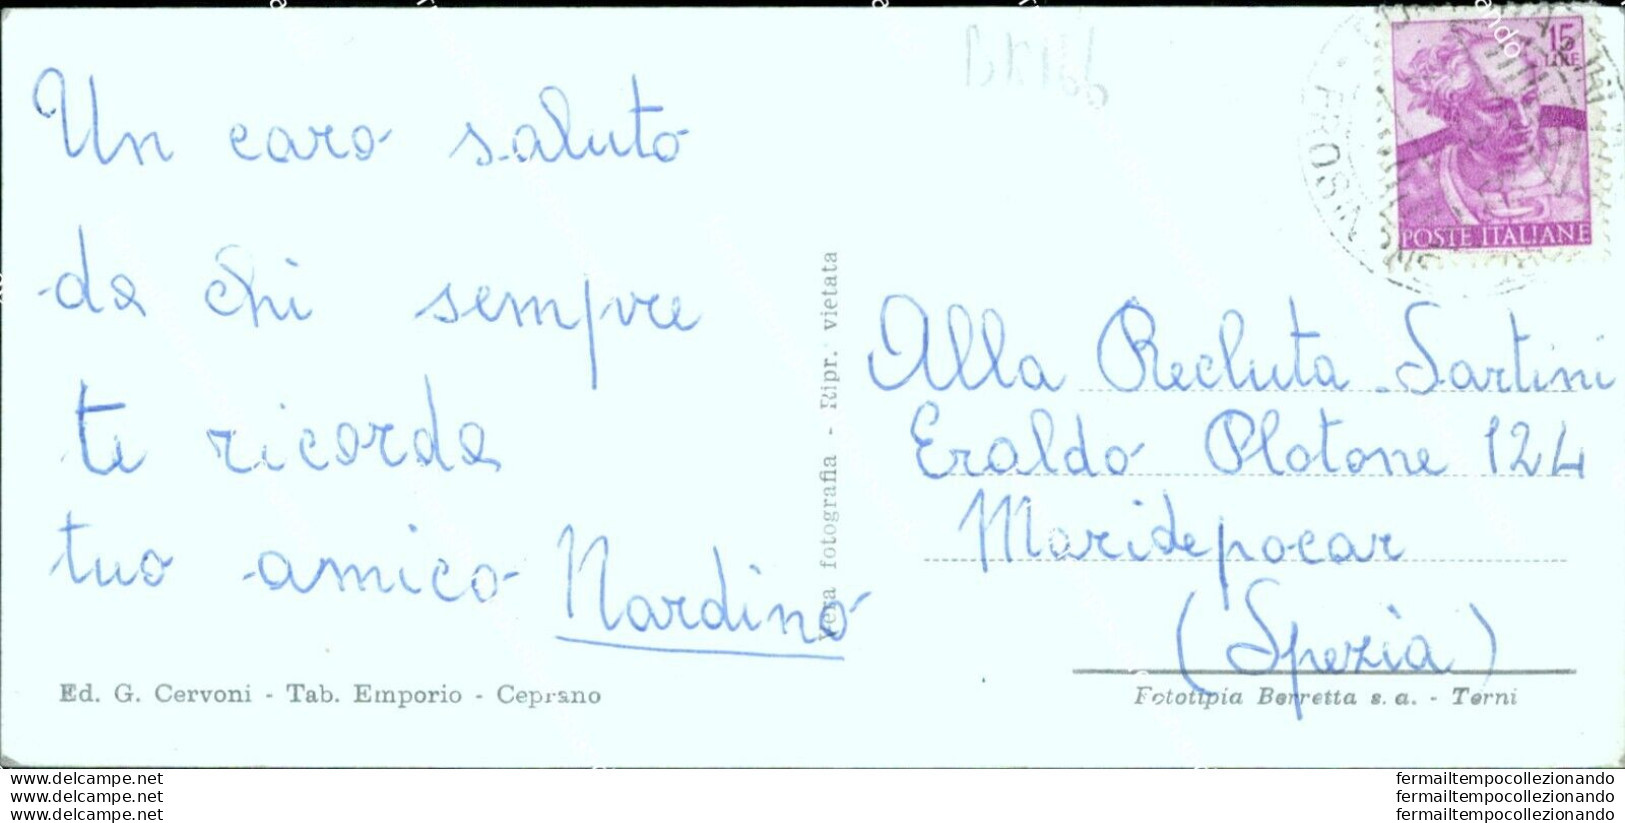 Un caro saluto
da chi sempre
te ricorda
tuo amico Nardino
Ed. G. Cervoni - Tab. Emporio - Ceprano
Vera fotografia - Ripr. vietata
15
LIRE
POSTE ITALIANE
Alla Recluta Sartini
Eraldo Plotone 124
Maridepocar
(Spezia)
Fototipia Berretta s. a. - Terni
www.delcampe.net
www.delcampe.net
www.delcampe.net
fermailtempocollezionando
fermailtempocollezionando
fermailtempocollezionando